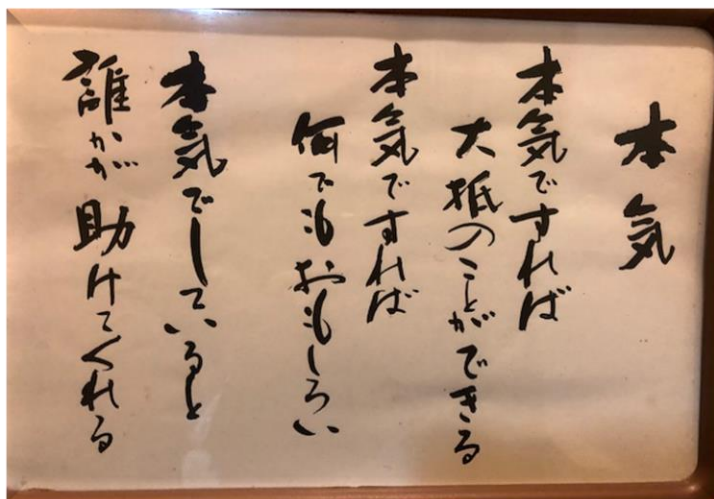 本気
本気ですれば
大抵のことができる
本気ですれば
何でもおもしろい
本気でしていると
誰かが助けてくれる